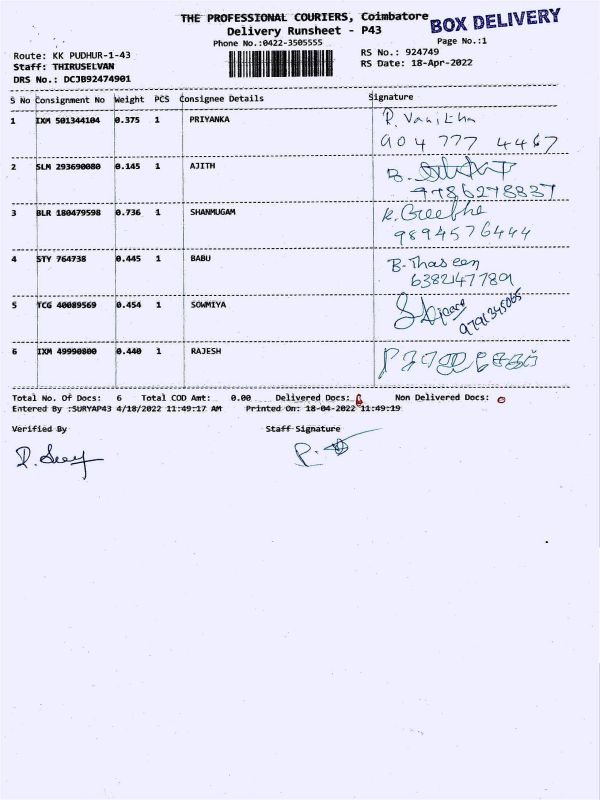 THE PROFESSIONAL COURIERS, Coimbatore
BOX DELIVERY
Delivery Runsheet - P43
Phone No.:0422-3505555
Page No.:1
Route: KK PUDHUR-1-43
RS No.: 924749
Staff: THIRUSELVAN
RS Date: 18-Apr-2022
DRS No.: DCJB92474901
S No Consignment No Weight PCS Consignee Details Signature
1 IXM 501344104 0.375 1 PRIYANKA R. Vanitha
904 777 4467
2 SLM 293690080 0.145 1 AJITH B.
9786278837
3 BLR 180479598 0.736 1 SHANMUGAM K. Greetha
9894576444
4 STY 764738 0.445 1 BABU B. Thaseen
6382147789
5 TCG 40089569 0.454 1 SOWMIYA
6 IXM 49990800 0.440 1 RAJESH
Total No. Of Docs: 6 Total COD Amt: 0.00 Delivered Docs: 6 Non Delivered Docs: 0
Entered By :SURYAP43 4/18/2022 11:49:17 AM Printed On: 18-04-2022 11:49:19
Verified By Staff Signature